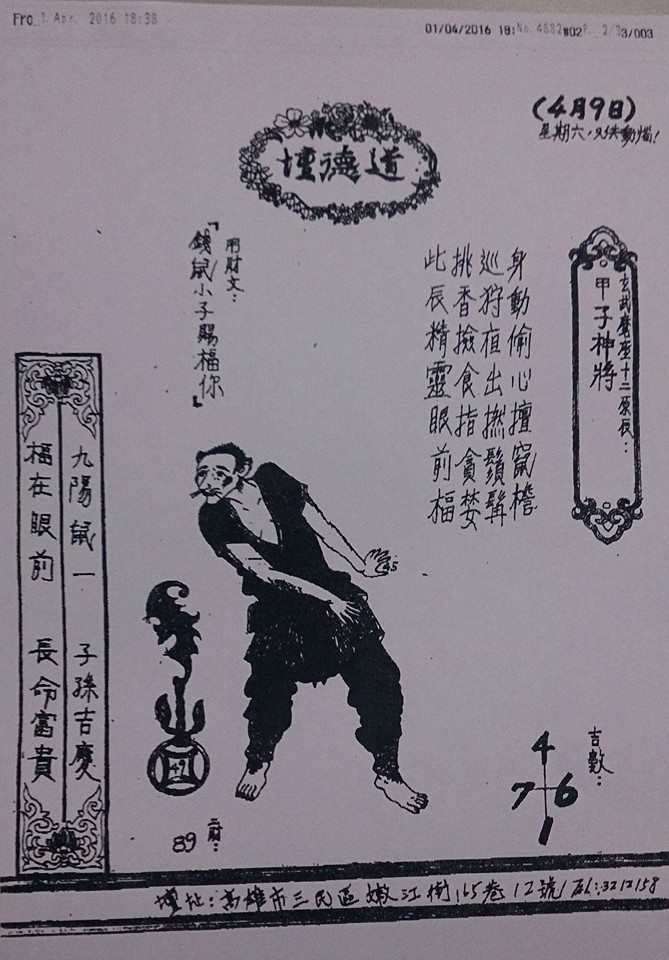 Fro_1. Apr. 2016 18:38
01/04/2016 18: No. 4882 #02 P. 2/3 3/003
(4月9日)
星期六,
道德壇
玄武麾座十二原辰:
甲子神將
身動偷心擅窺檐
巡狩夜出撚鬚髯
挑香撿食指貪婪
此辰精靈眼前福
用財文:
「錢鼠小子賜福你」
九陽鼠一 子孫吉慶
福在眼前 長命富貴
45
47
89
吉數:
4
7 6
1
壇址:高雄市三民區嫩江街165巷12號/Tel:3212158